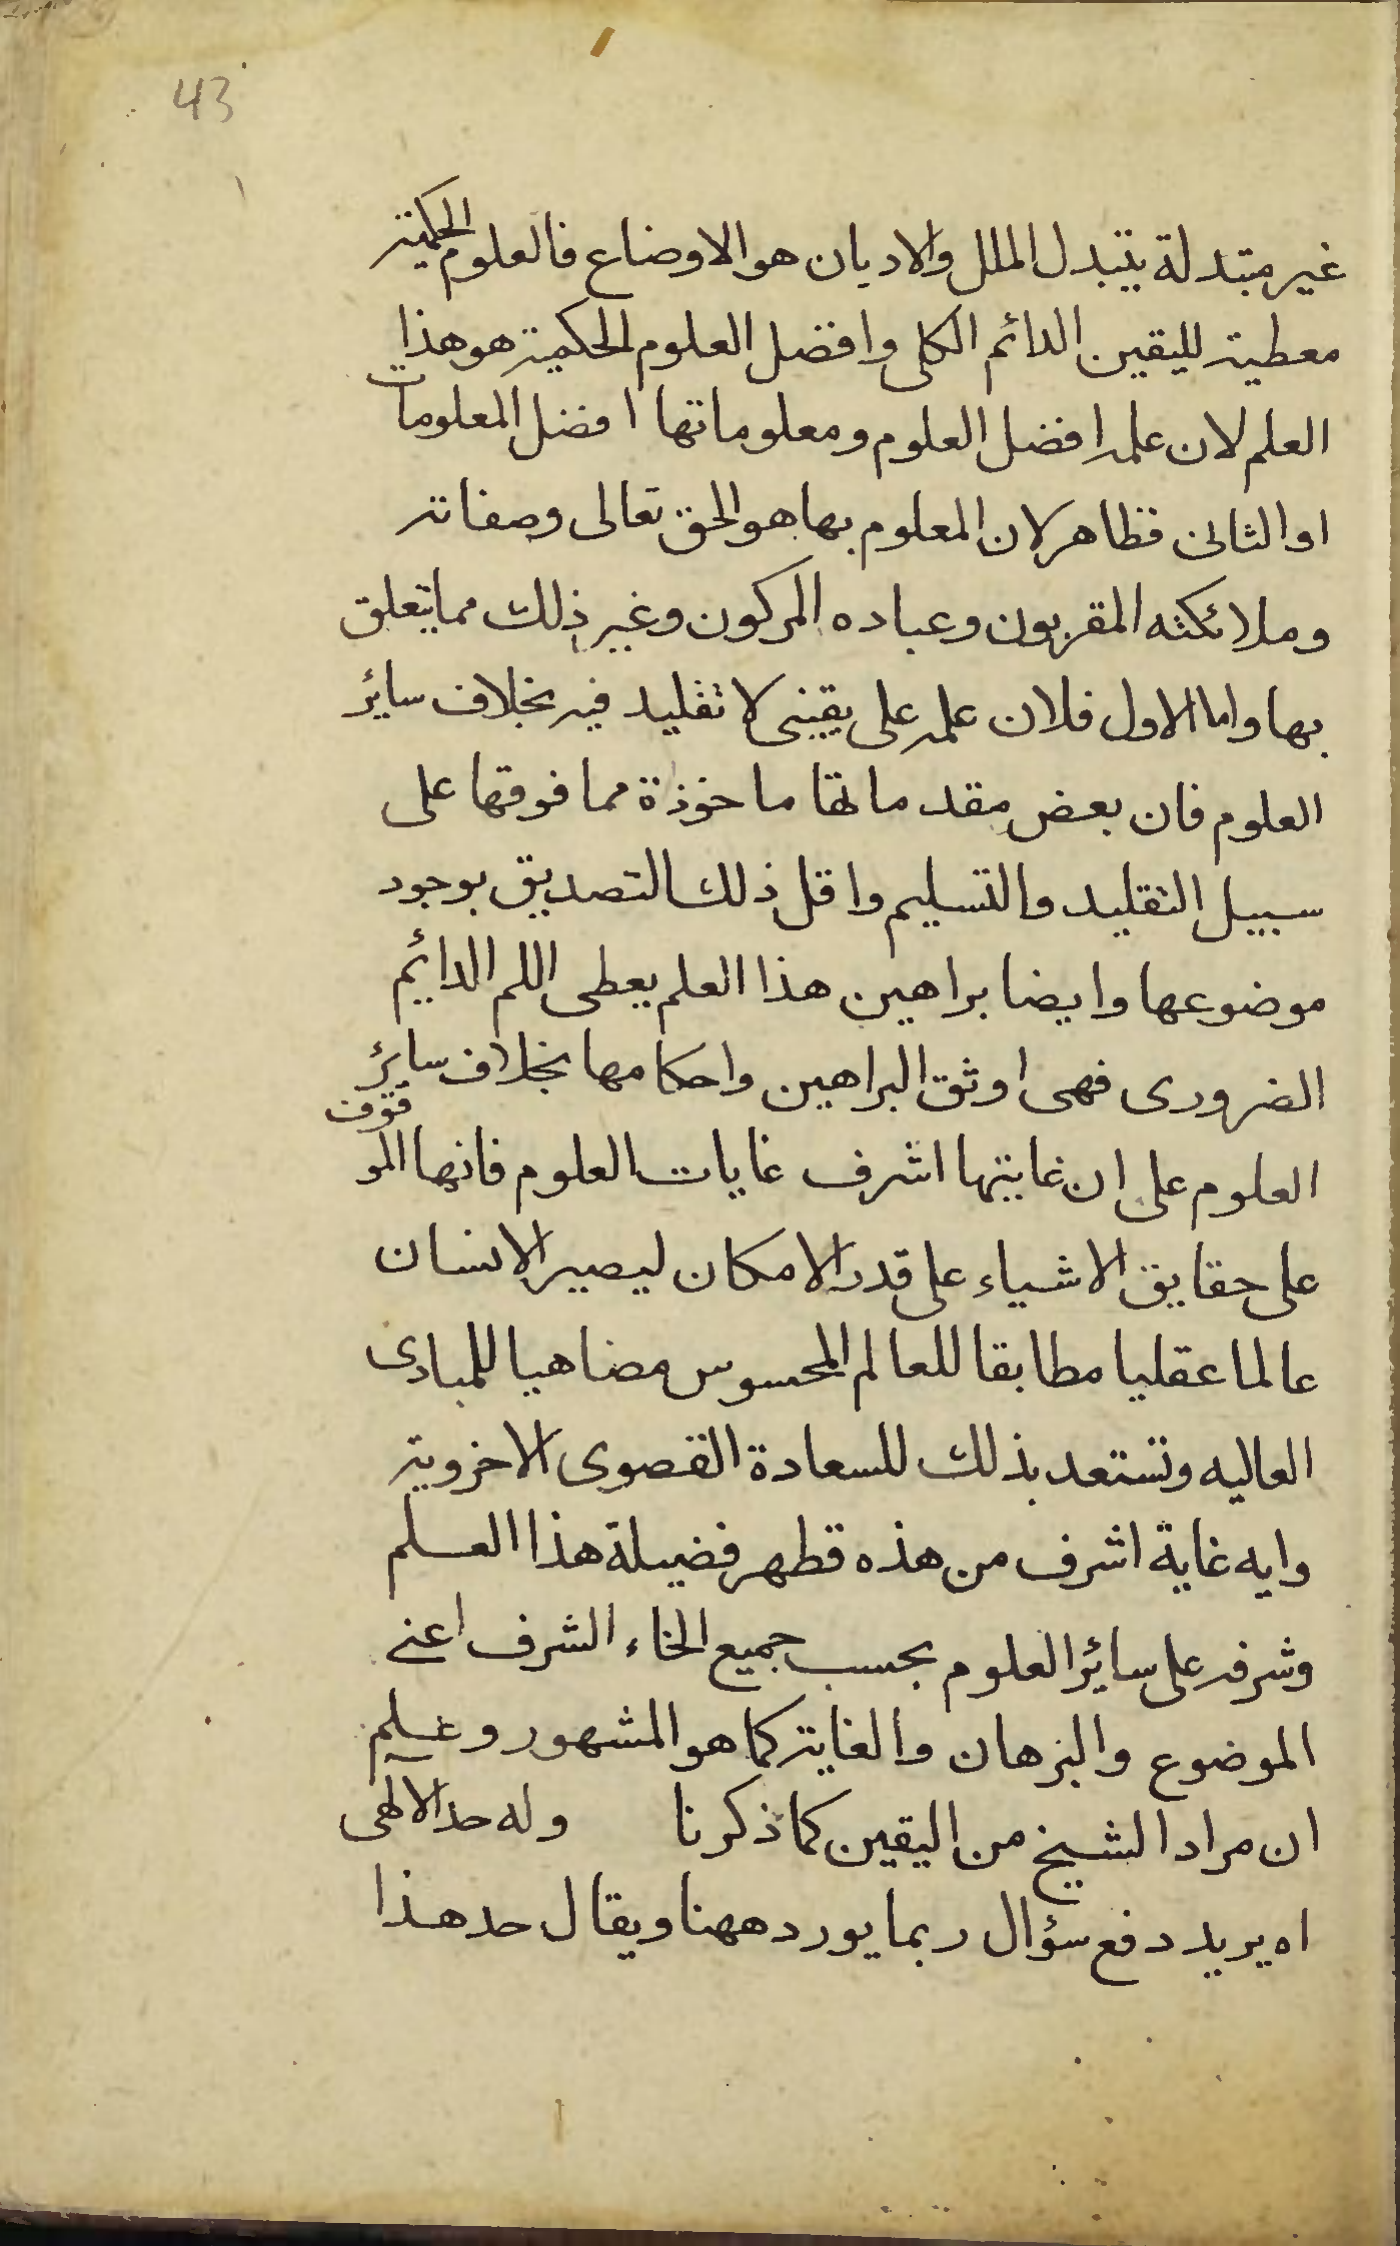 43
غير متبدلة بتبدل الملل والاديان هو الاوضاع فالعلوم الحكمية
معطية لليقين الدائم الكلى وافضل العلوم الحكمية هو هذا
العلم لان علمه افضل العلوم ومعلوماتها افضل المعلومات
او الثانى فظاهر لان المعلوم بها هو الحق تعالى وصفاته
وملائكته المقربون وعباده المركون وغير ذلك مما يتعلق
بها واما الاول فلان علمه على يقينى لا تقليد فيه بخلاف سائر
العلوم فان بعض مقدماتها ماخوذة مما فوقها على
سبيل التقليد والتسليم واقل ذلك التصديق بوجود
موضوعها وايضا براهين هذا العلم يعطى اللم الدائيم
الضرورى فهى اوثق البراهين واحكامها بخلاف سائر
العلوم على ان غايتها اشرف غايات العلوم فانها الموقوف
على حقايق الاشياء على قدر الامكان ليصير الانسان
عالما عقليا مطابقا للعالم المحسوس مضاهيا للمبادى
العاليه وتستعد بذلك للسعادة القصوى الاخروية
وايه غاية اشرف من هذه قطهر فضيلة هذا العلم
وشرفه على سائر العلوم بحسب جميع الخاء الشرف اعنے
الموضوع والبرهان والغاية كما هو المشهور وعلم
ان مراد الشيخ من اليقين كما ذكرنا وله حد الالهى
اه يريد دفع سؤال ربما يورد ههنا ويقال حد هذا